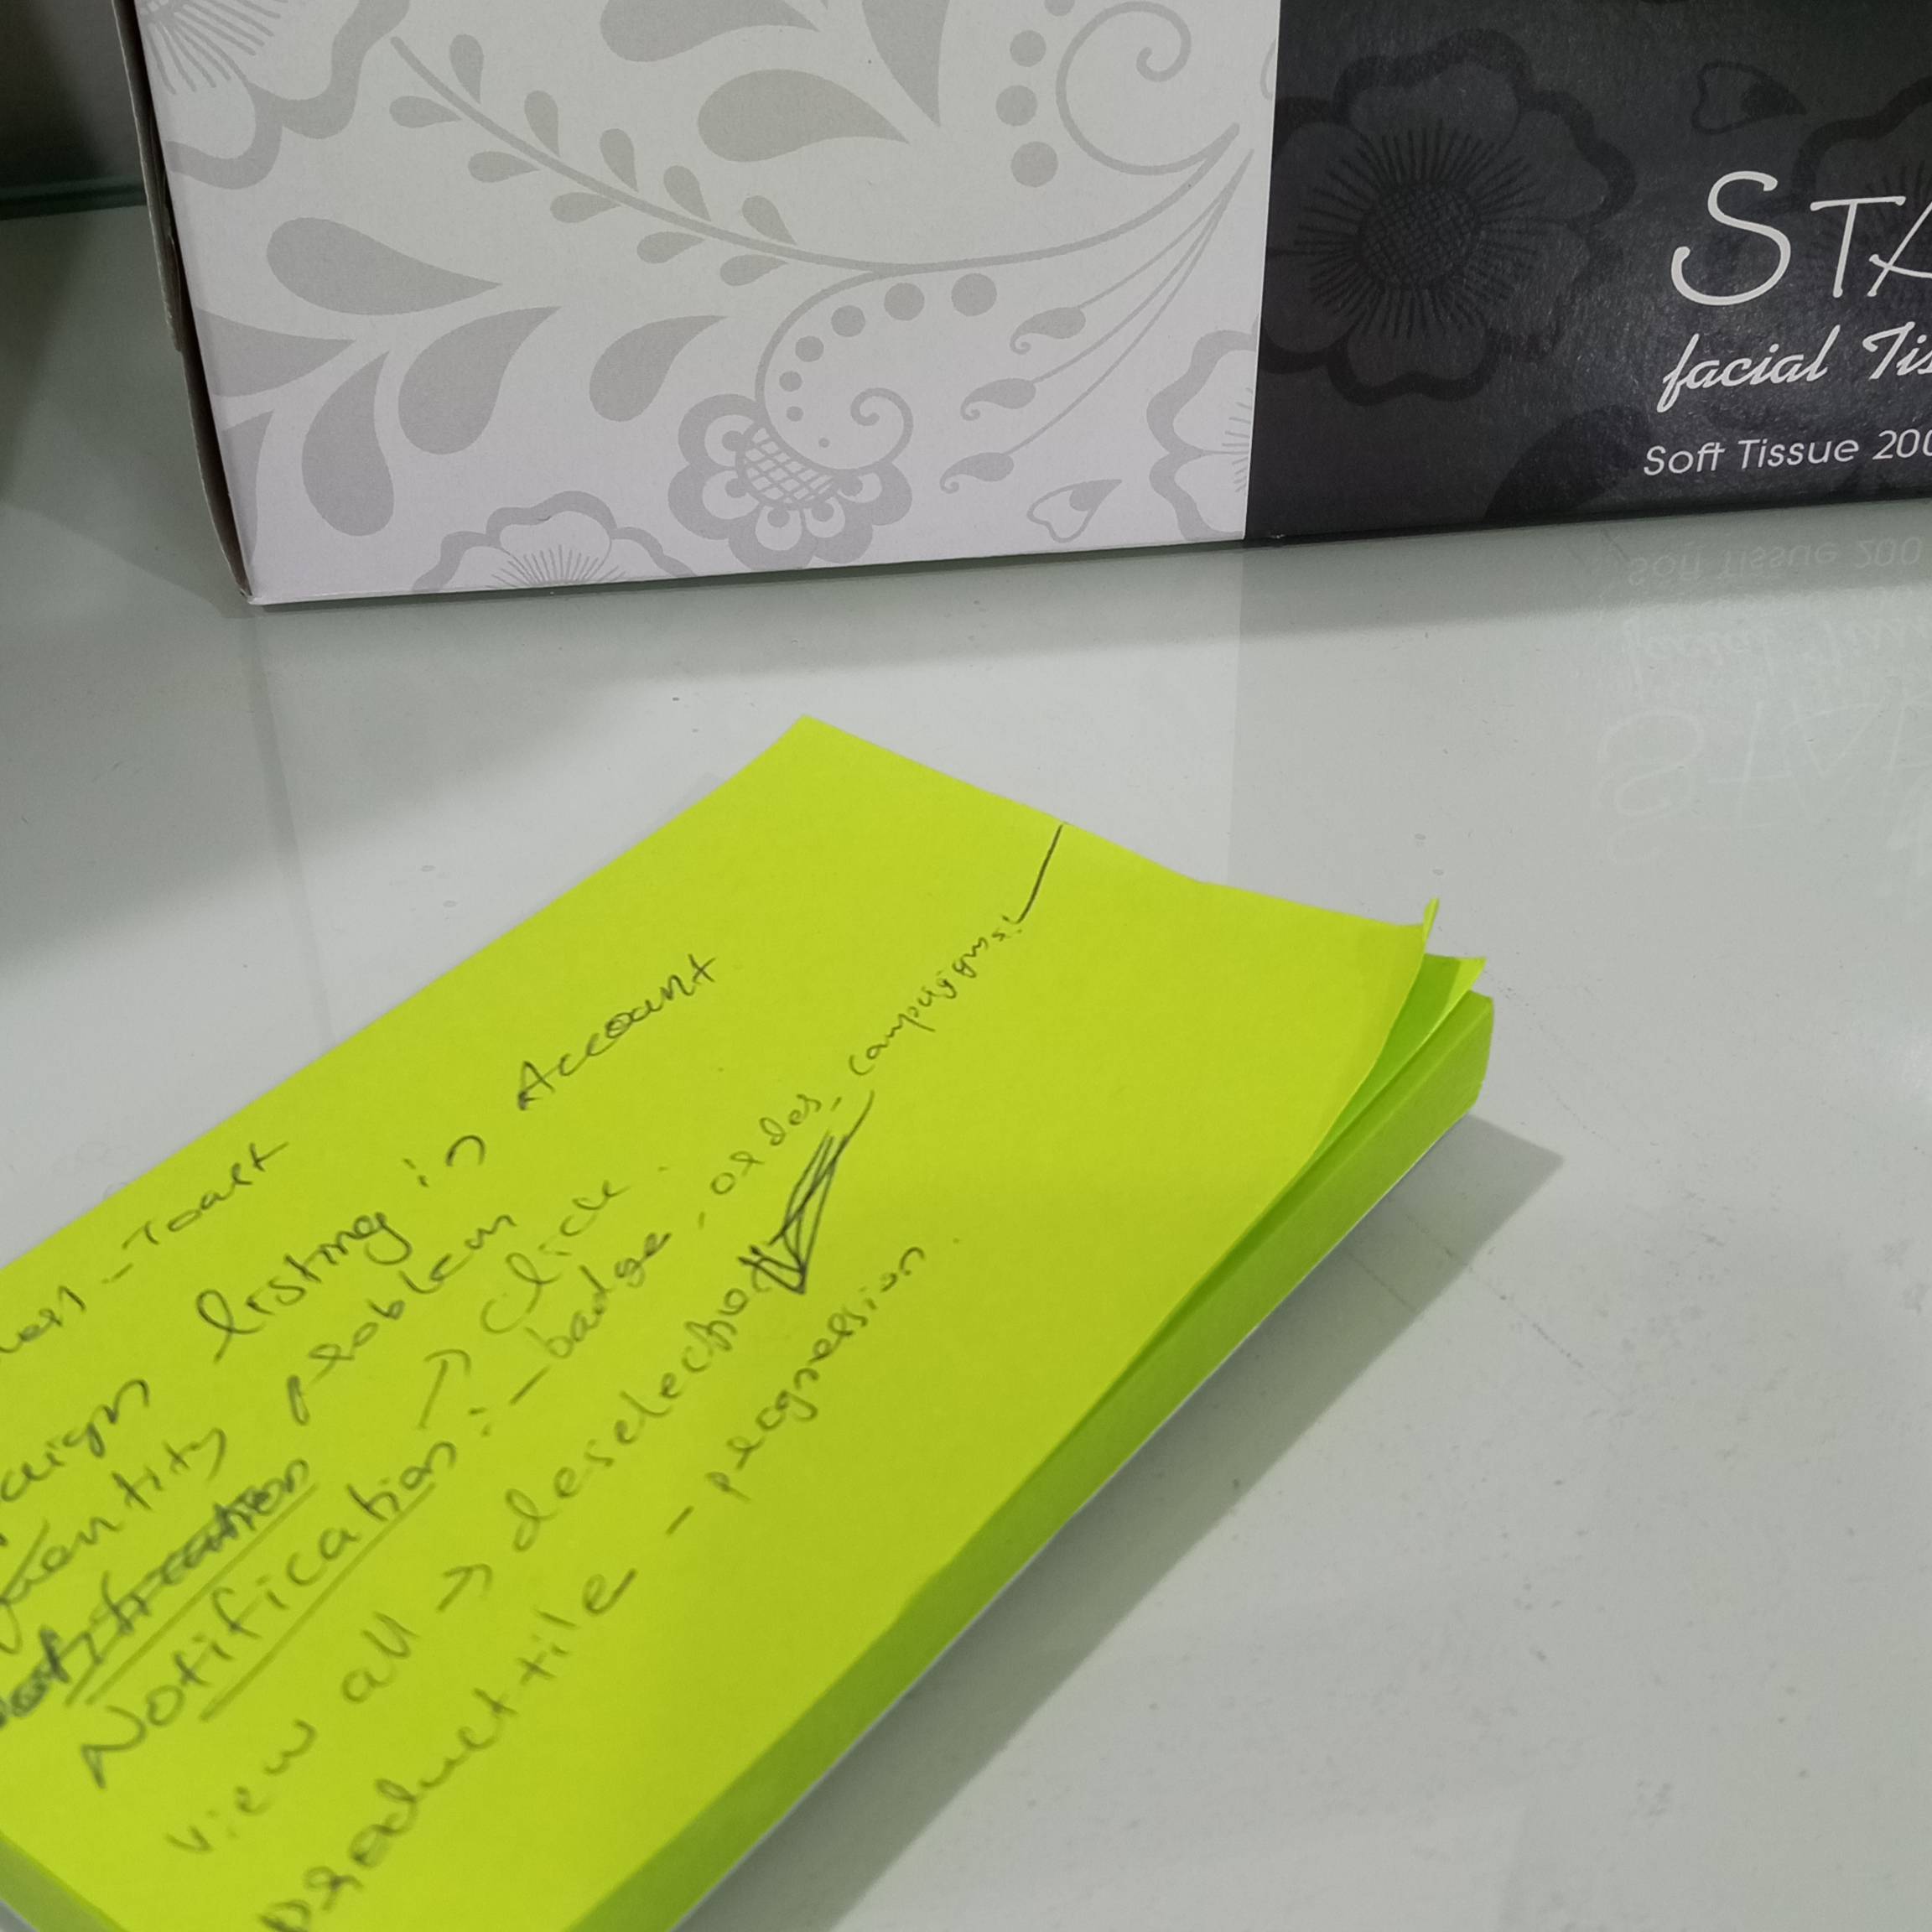 STA
facial Tis
Soft Tissue 200
- Toast
aign listing in Account
uentity problem
Notification :- badge - order - campaigns!
→ click.
view all → deselection
product tile - progression.